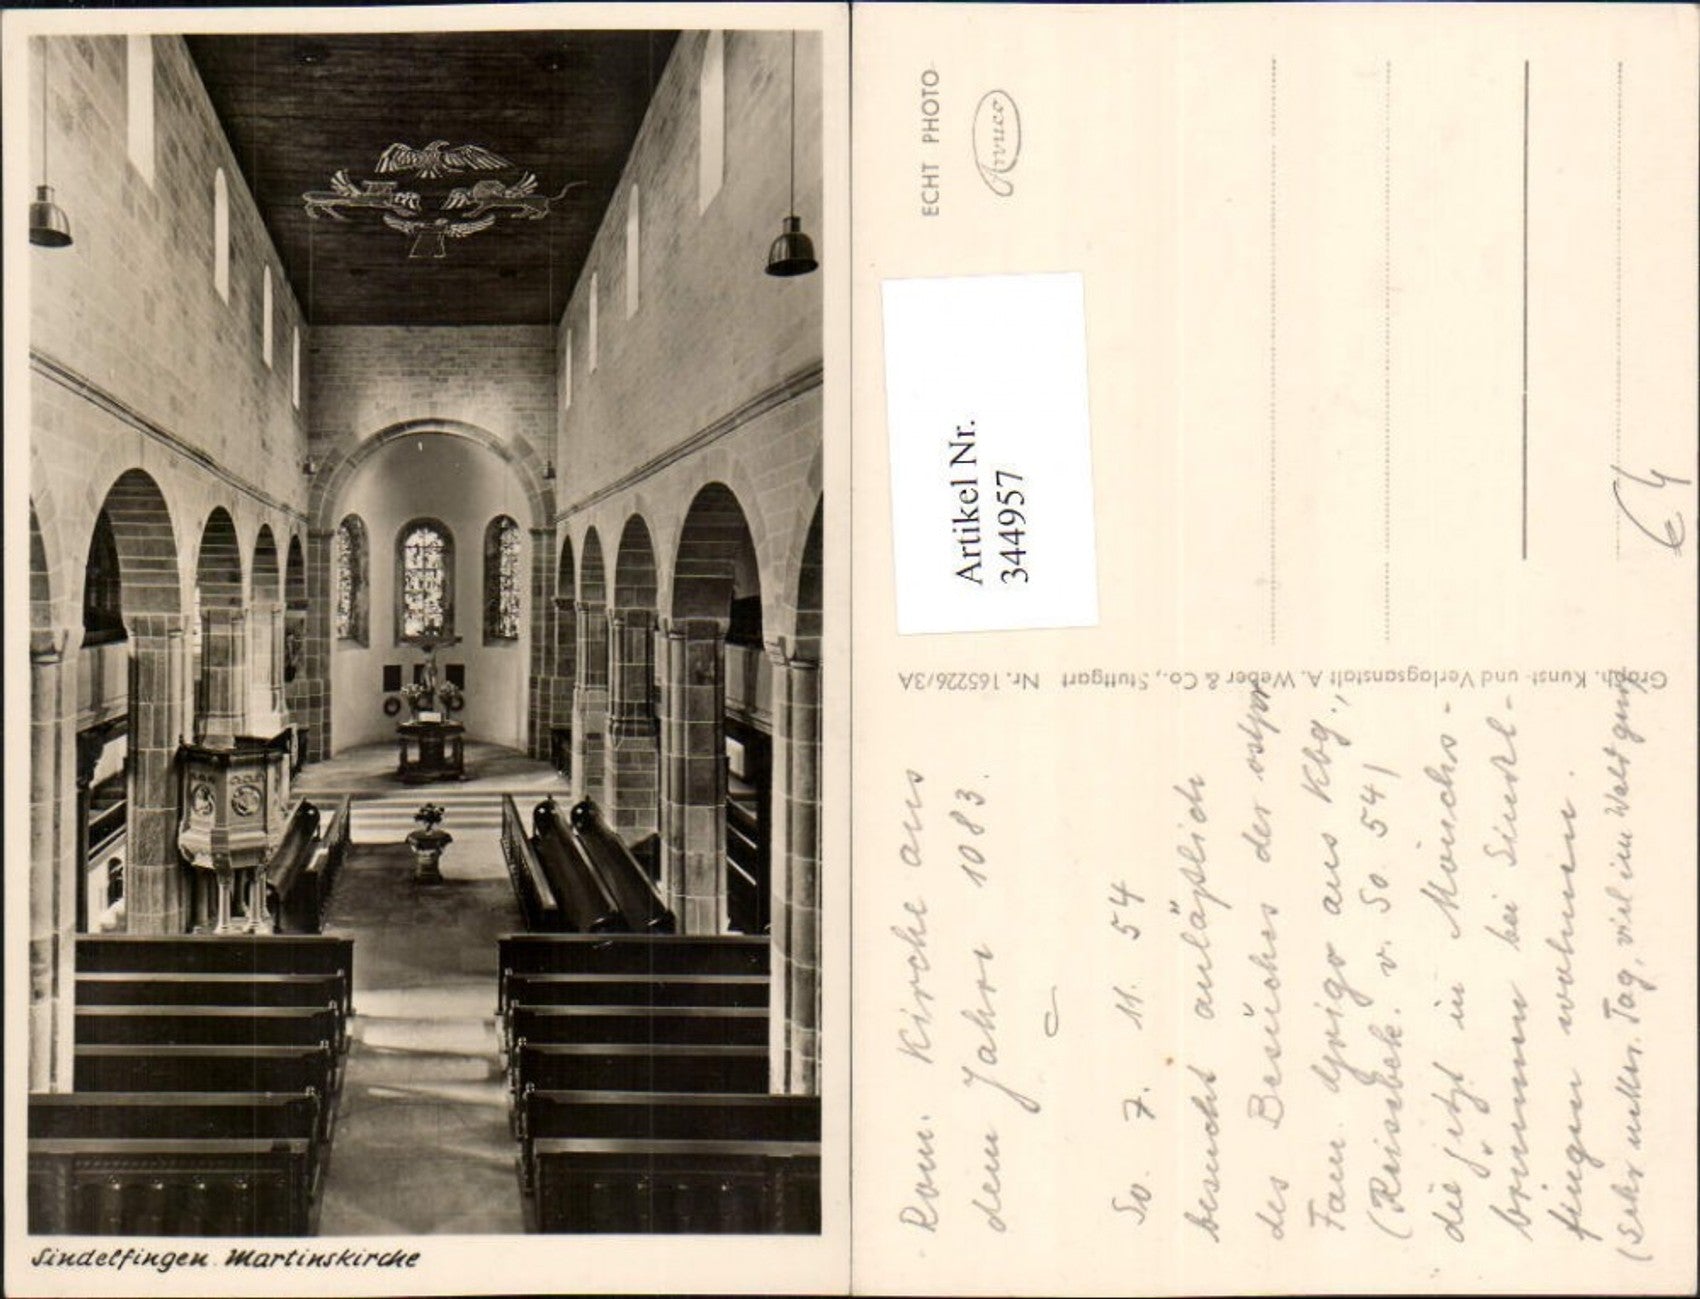 Sindelfingen. Martinskirche
ECHT PHOTO
Arweco
Artikel Nr.
344957
Graph. Kunst- und Verlagsanstalt A. Weber & Co., Stuttgart Nr. 165226/3A
Rom. Kirche aus
dem Jahre 1083.
So. 7. 11. 54
besucht anläßlich
des Besuches der ostpr
Fam. aus Kbg.,
v. So. 54)
die jetzt in Mönchs-
brunnen bei Sindel-
fingen wohnen.
(Sehr nebl. Tag, viel im Wald
€ 4